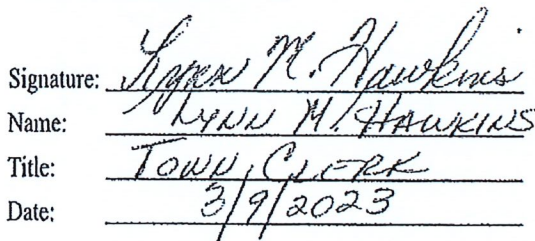 Signature: Lynn M. Hawkins
Name: LYNN M. HAWKINS
Title: TOWN CLERK
Date: 3/9/2023